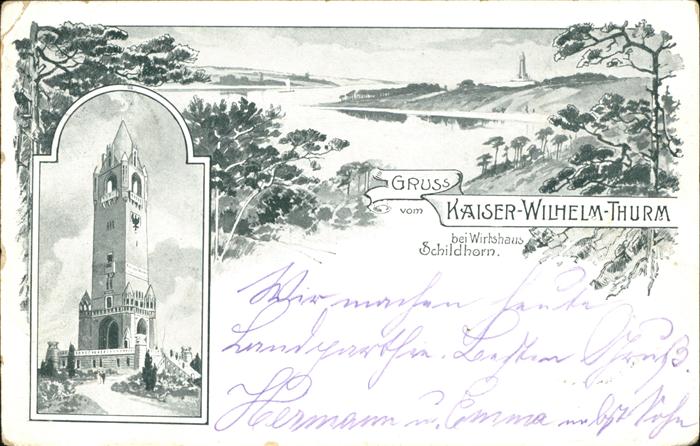 GRUSS
vom KAISER-WILHELM-THURM
bei Wirtshaus
Schildhorn.
Wir machen heute
Landparthie. Besten Gruß.
Hermann u. Emma nebst Sohn